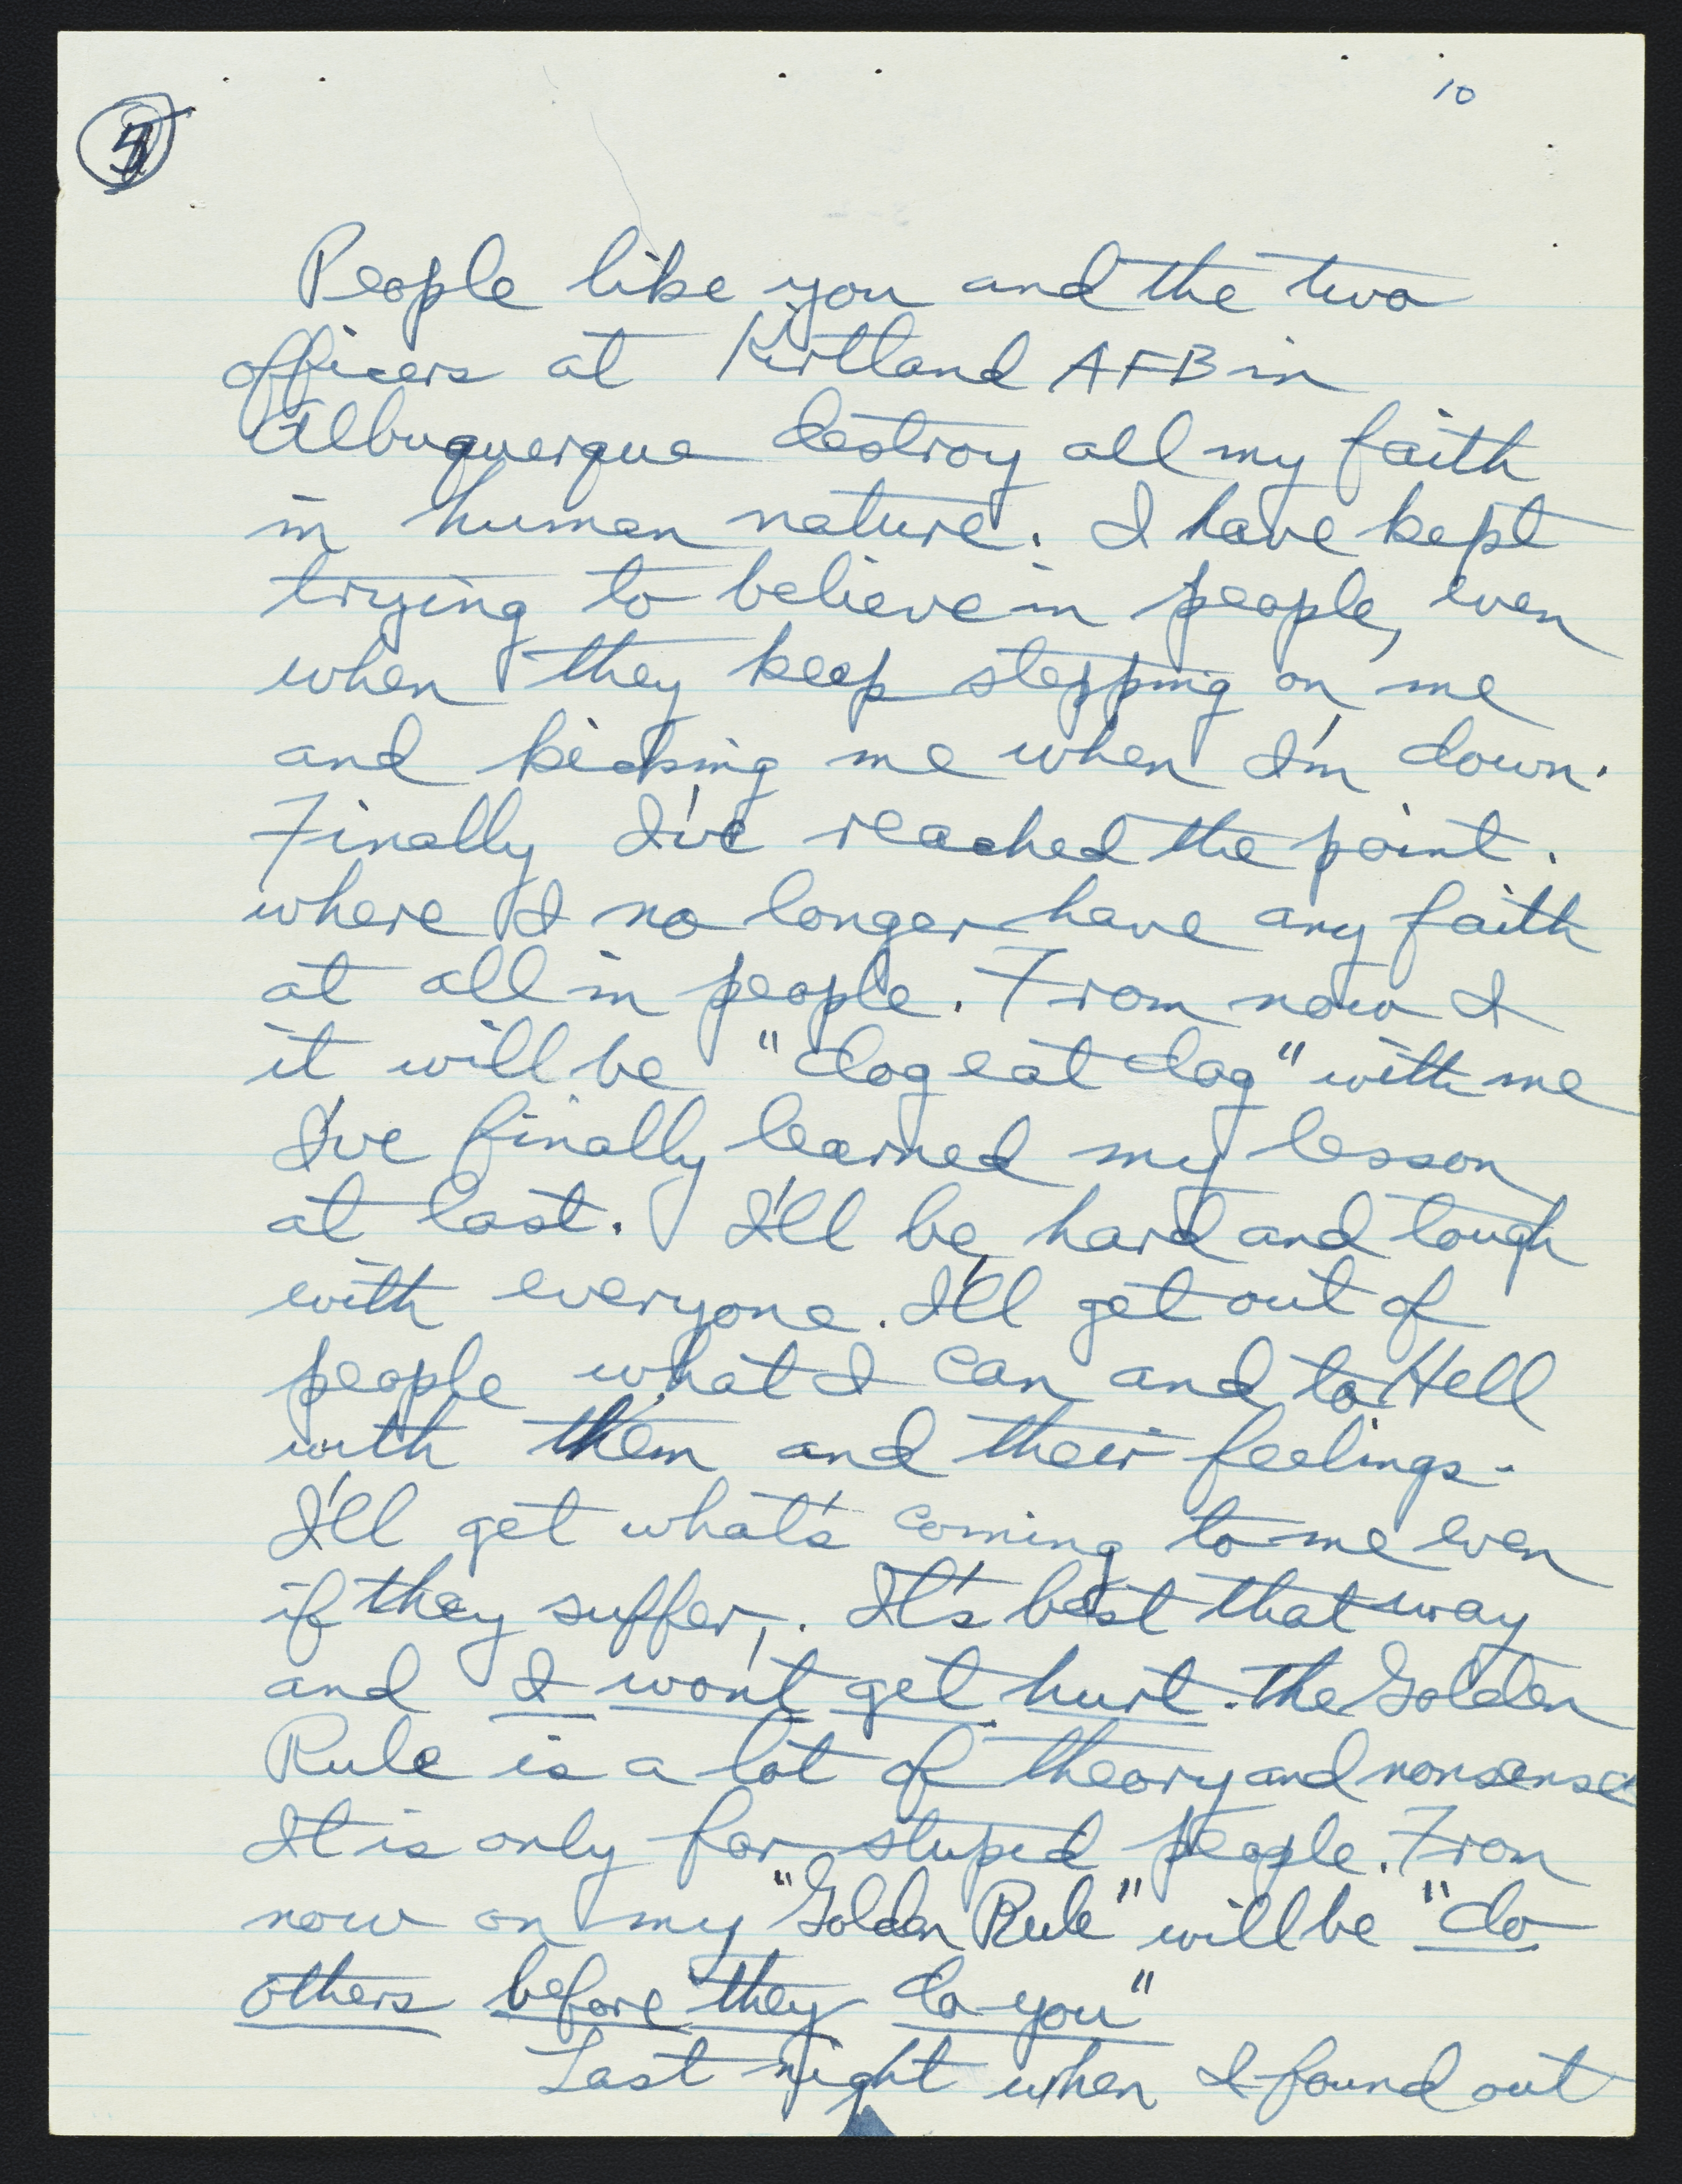 10
5
People like you and the two
officers at Kirtland AFB in
Albuquerque destroy all my faith
in human nature. I have kept
trying to believe in people, even
when they keep stepping on me
and kicking me when I'm down.
Finally I've reached the point.
where I no longer have any faith
at all in people. From now I
it will be "dog eat dog" with me
I've finally learned my lesson
at last. I'll be hard and tough
with everyone. I'll get out of
people what I can and to Hell
with them and their feelings.
I'll get what's coming to me even
if they suffer,. It's best that way
and I won't get hurt. The Golden
Rule is a lot of theory and nonsense
It is only for stupid people. From
now on my "Golden Rule" will be "do
others before they do you"
Last night when I found out